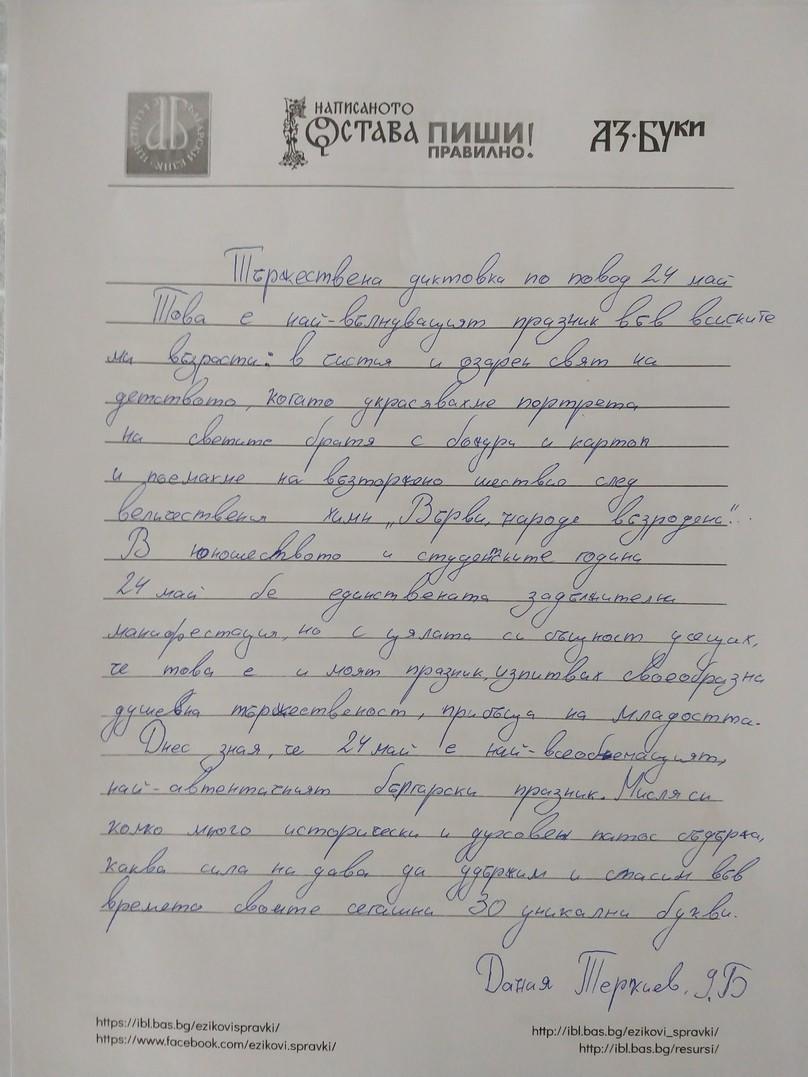 НАПИСАНОТО
ОСТАВА ПИШИ!
ПРАВИЛНО!
АЗ·БУКИ
Тържествена диктовка по повод 24 май
Това е най-вълнуващият празник във всиските
ми възрасти: в чистия и озарен свят на
детството, когато украсявахме портрета
на светите братя с божури и картон
и поемахме на възторжено шествио след
величествения химн „Върви, народе възродени".
В юношеството и студентските години
24 май бе единствената задължителна
манифестация, но с цялата си същност усещах,
че това е и моят празник, изпитвах своеобразна
душевна тържественост, присъща на младостта.
Днес зная, че 24 май е най-всеобемащият,
най-автентичният български празник. Мисля си
колко много исторически и духовен патос съдържа,
каква сила на дава да удържим и спасим във
времето своите сегашни 30 уникални букви.
Даная Терзиев. 9.Б
https://ibl.bas.bg/ezikovispravki/
https://www.facebook.com/ezikovi.spravki/
http://ibl.bas.bg/ezikovi_spravki/
http://ibl.bas.bg/resursi/